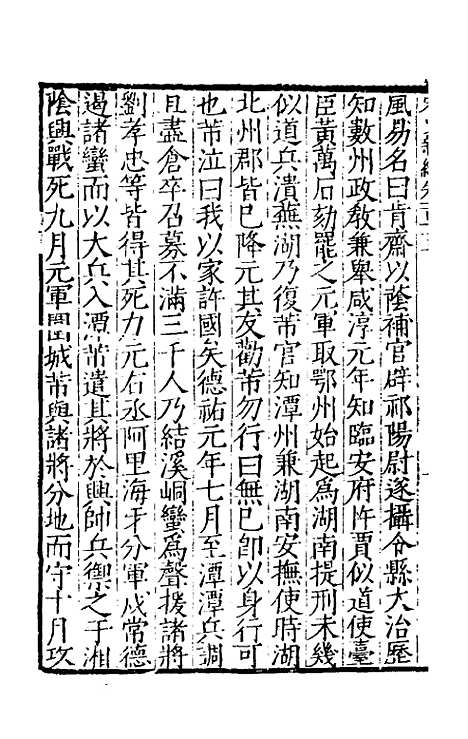 風易名曰肯齋以蔭補官辟祁陽尉遂攝令縣大治歷
知數州政教兼舉咸淳元年知臨安府忤賈似道使臺
臣黃萬石劾罷之元軍取鄂州始起為湖南提刑未幾
似道兵潰蕪湖乃復芾官知潭州兼湖南安撫使時湖
北州郡皆巳降元其友勸芾勿行曰無巳卽以身行可
也芾泣曰我以家許國矣德祐元年七月至潭潭兵調
且盡倉卒召募不滿三千人乃結溪峒蠻為聲援諸將
劉孝忠等皆得其死力元右丞阿里海牙分軍戍常德
遏諸蠻而以大兵入潭芾遣其將於興帥兵禦之于湘
陰興戰死九月元軍圍城芾與諸將分地而守十月攻